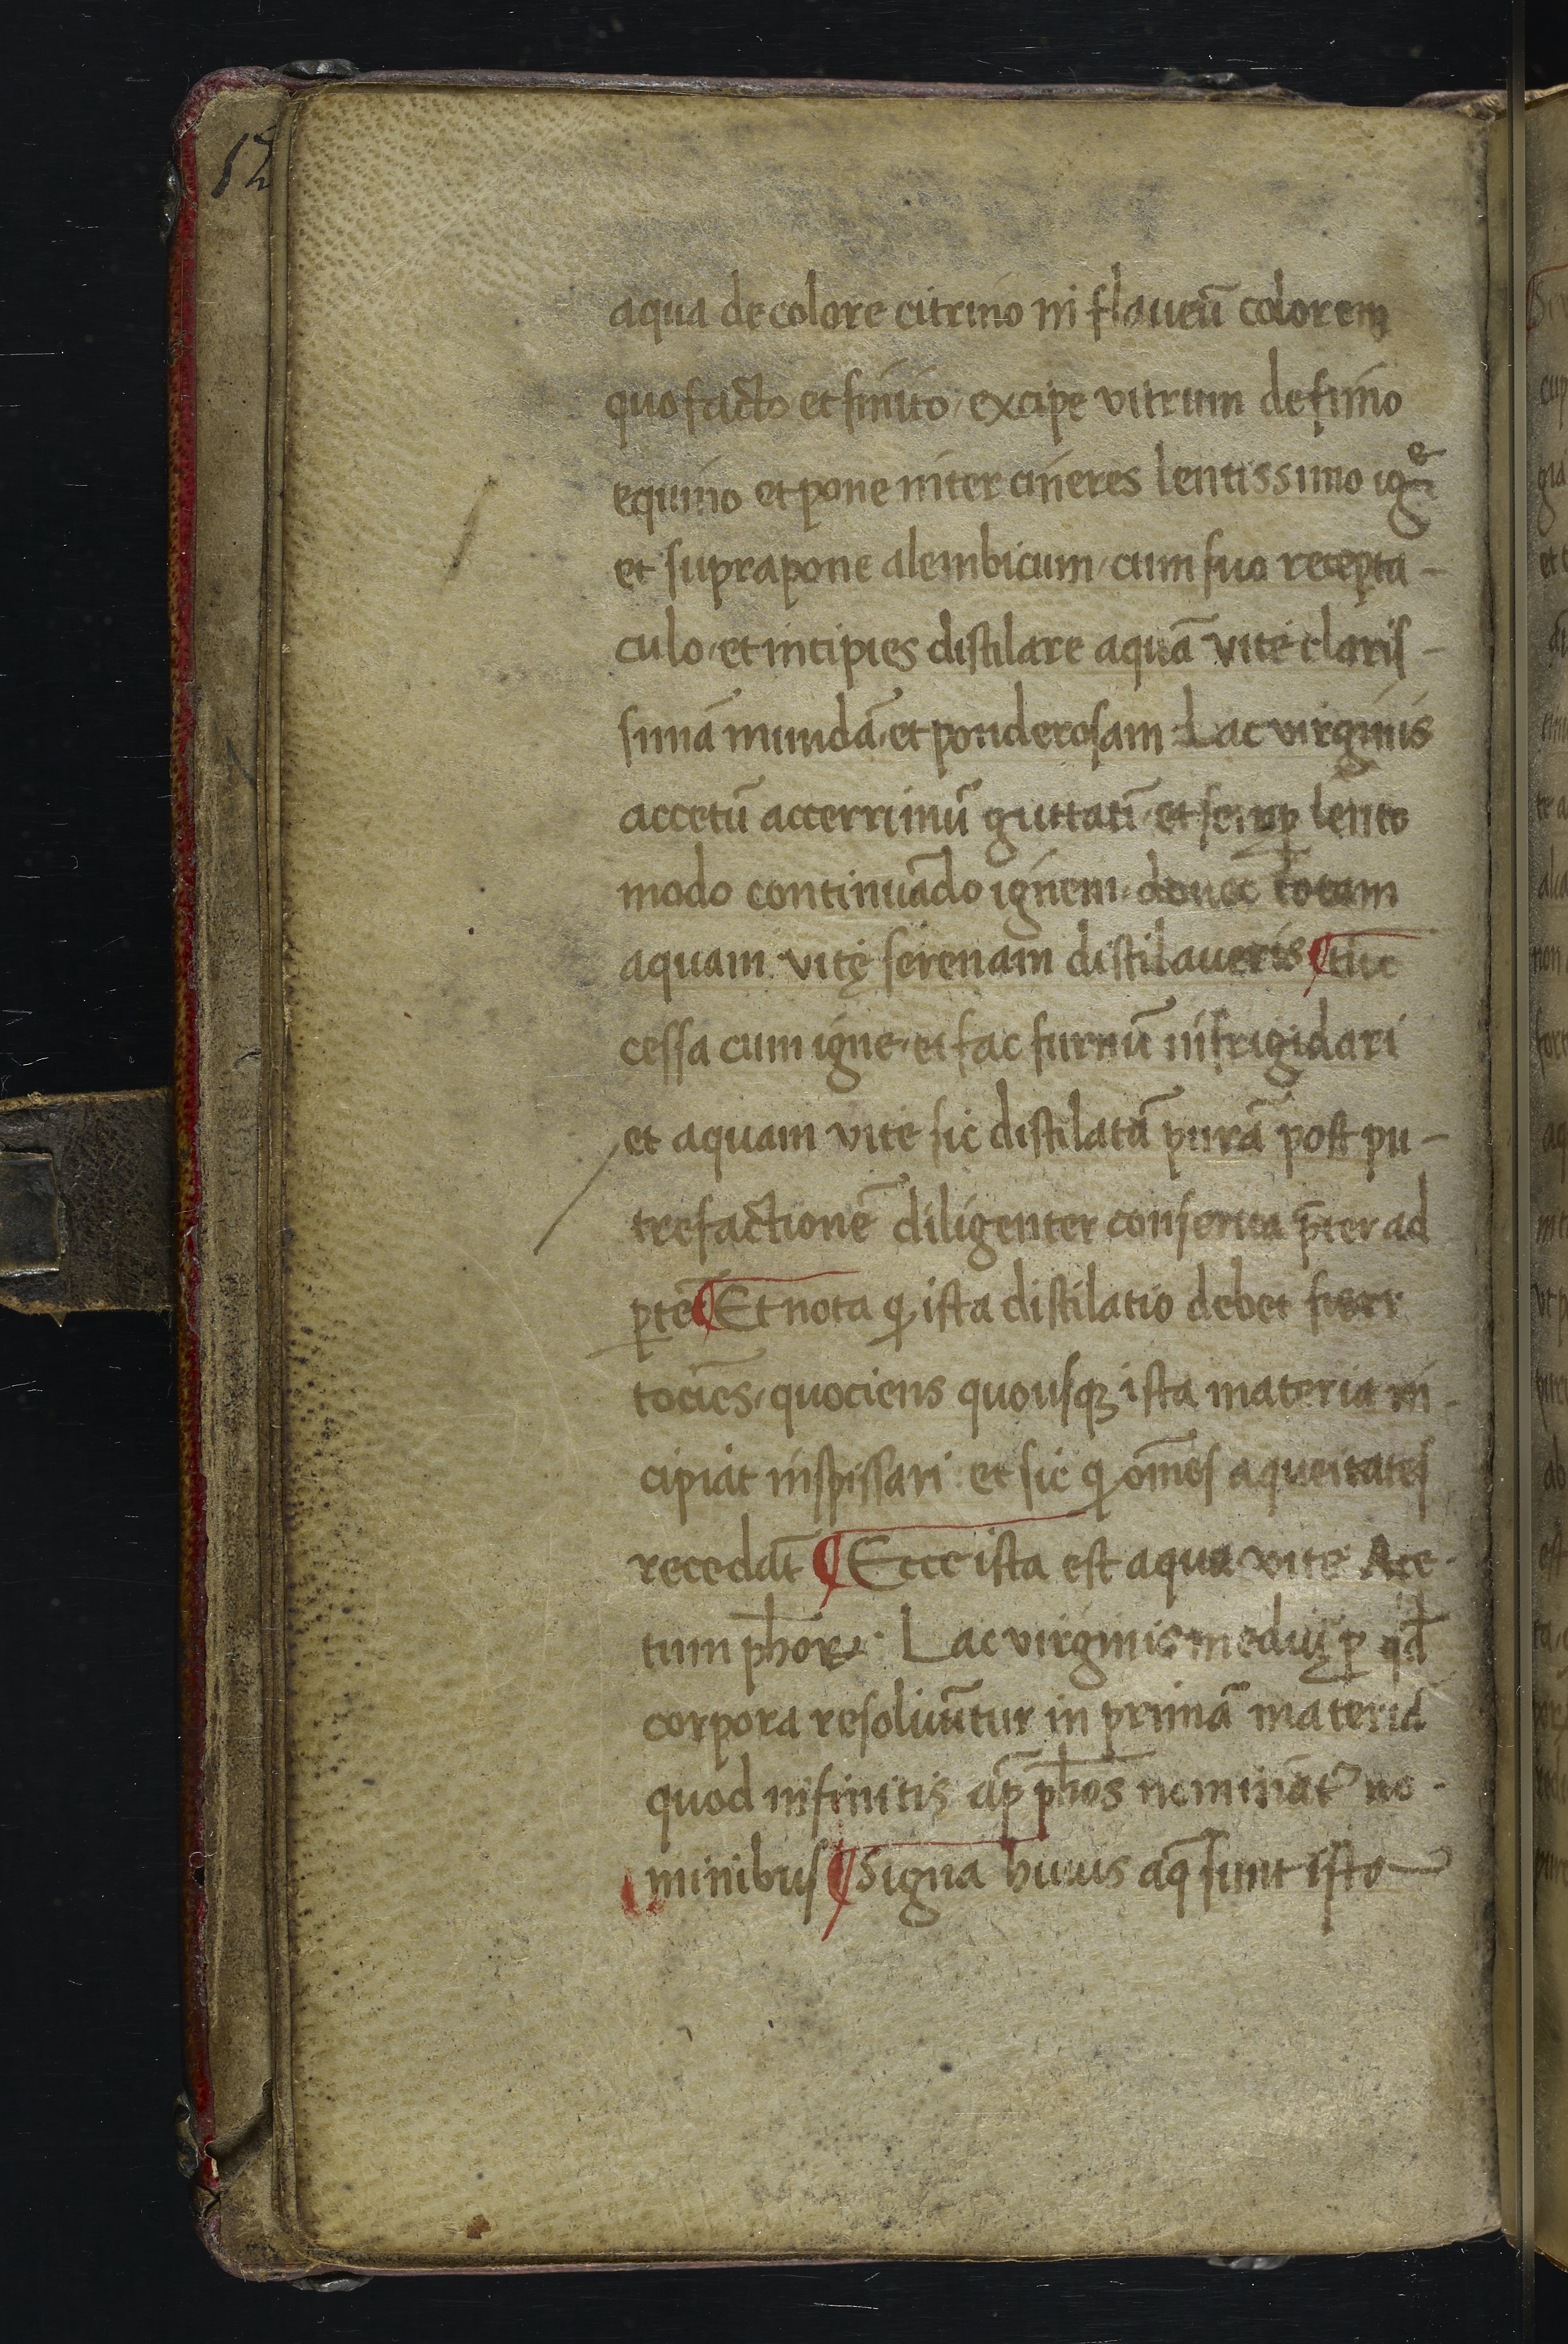 12
aqua de colore citrino in flaueū colorem
quo facto et finito / excipe vitrum de fimo
equino et pone inter cineres lentissimo igᵉ
et suprapone alembicum / cum suo recepta -
culo / et incipies distilare aquā vite claris -
simā mundā / et ponderosam Lac virginis
accetū accerrimū guttatī / et semꝑ lento
modo continuādo ignem / donec totam
aquam vitę serenam distilaueris ¶ tūc
cessa cum igne / et fac furnū infrigidari
et aquam vite sic distilatā purā post pu -
trefactionē diligenter conserua p̄ter ad
ꝑtē ¶ Et nota ꝙ ista distilatio debet fieri
tociēs / quociens quousqꝫ ista materia in -
cipiat inspissari et sic ꝙ om̄es aqueitates
recedāt ¶ Ecce ista est aqua vite Ace -
tum ph̄oꝝ · Lac virginis mediū ꝑ qđ
corpora resoluūtur in primā materiā
quod infinitis ap̄ ph̄os nominātᷣ no -
minibus ¶ Signa huius aq̄ sunt isto